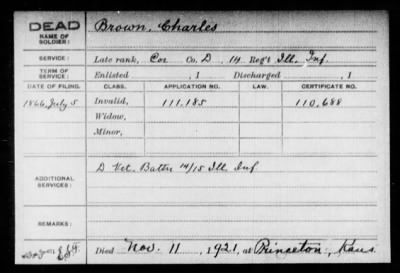 DEAD
NAME OF SOLDIER: Brown, Charles
SERVICE: Late rank, Cor Co. D, 14 Reg't Ill. Inf.
TERM OF SERVICE: Enlisted , 1 Discharged , 1
DATE OF FILING. CLASS. APPLICATION NO. LAW. CERTIFICATE NO.
1866, July 5 Invalid, 111,185 110,688
Widow,
Minor,
ADDITIONAL SERVICES: D Vet. Battn 14/15 Ill Inf
REMARKS:
Died Nov. 11, 1921, at Princeton, Kans.